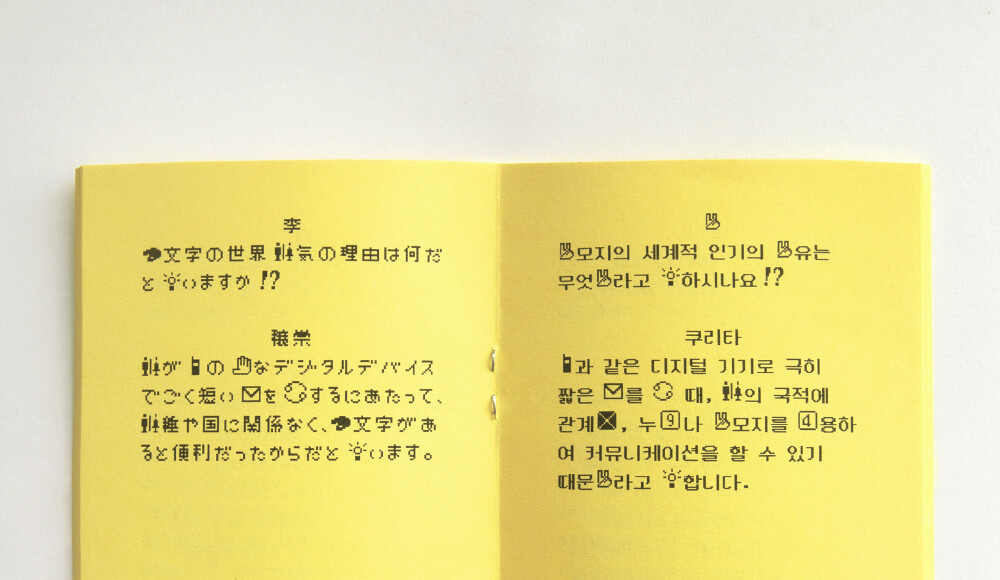 李
文字の世界🚻気の理由は何だ
と💡いますか⁉
穣崇
🚻が📱の✋なデジタルデバイス
でごく短い✉を♋するにあたって、
🚻種や国に関係なく、文字があ
ると便利だったからだと💡います。
✌
✌모지의 세계적 인기의 ✌유는
무엇✌라고 💡하시나요⁉
쿠리타
📱과 같은 디지털 기기로 극히
짧은 ✉를 ♋ 때, 🚻의 국적에
관계, 누9️⃣나 ✌모지를 4️⃣용하
여 커뮤니케이션을 할 수 있기
때문✌라고 💡합니다.